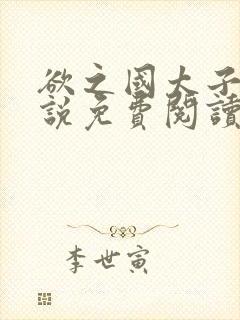 欲之國太子
說免費閱讀
李世寅